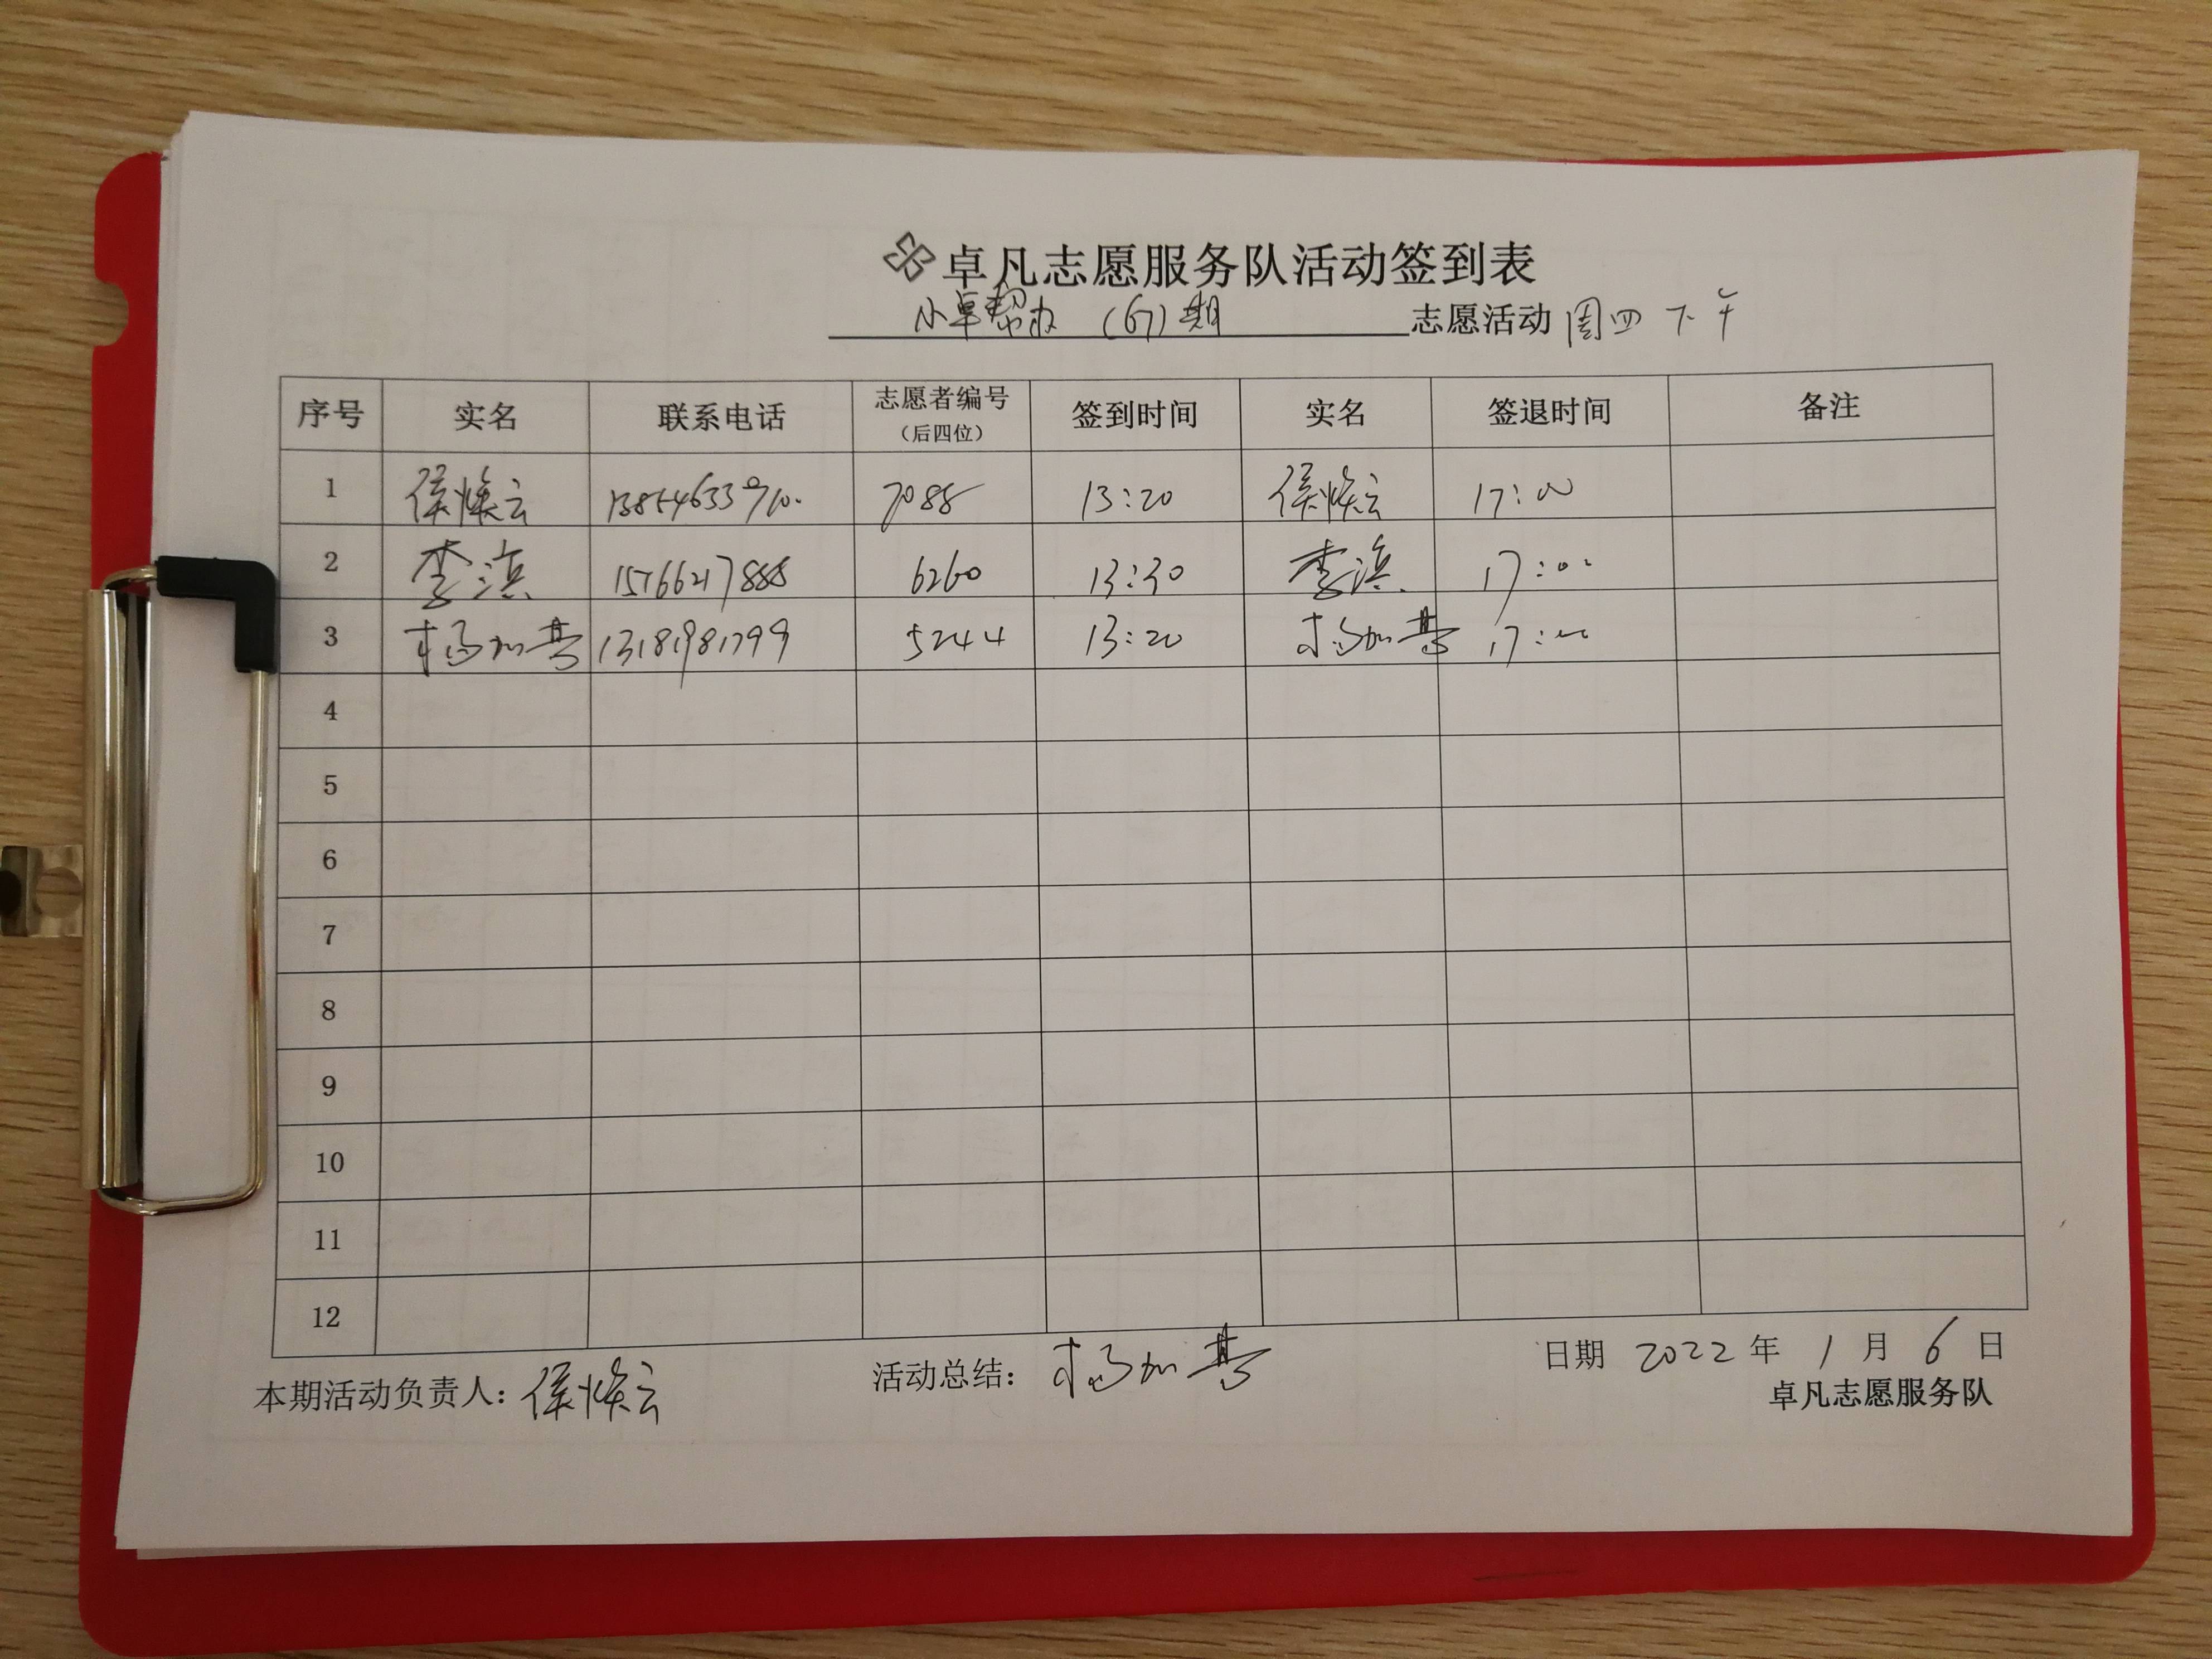 卓凡志愿服务队活动签到表
小卓帮办 (67) 期 志愿活动 周四下午
序号 实名 联系电话 志愿者编号（后四位） 签到时间 实名 签退时间 备注
1 侯焕云 7088 13:20 侯焕云 17:00
2 李滨 15166217888 6260 13:30 李滨 17:00
3 杨加营 13181981799 5244 13:20 杨加营 17:00
4
5
6
7
8
9
10
11
12
本期活动负责人：侯焕云 活动总结：杨加营 日期 2022 年 1 月 6 日
卓凡志愿服务队